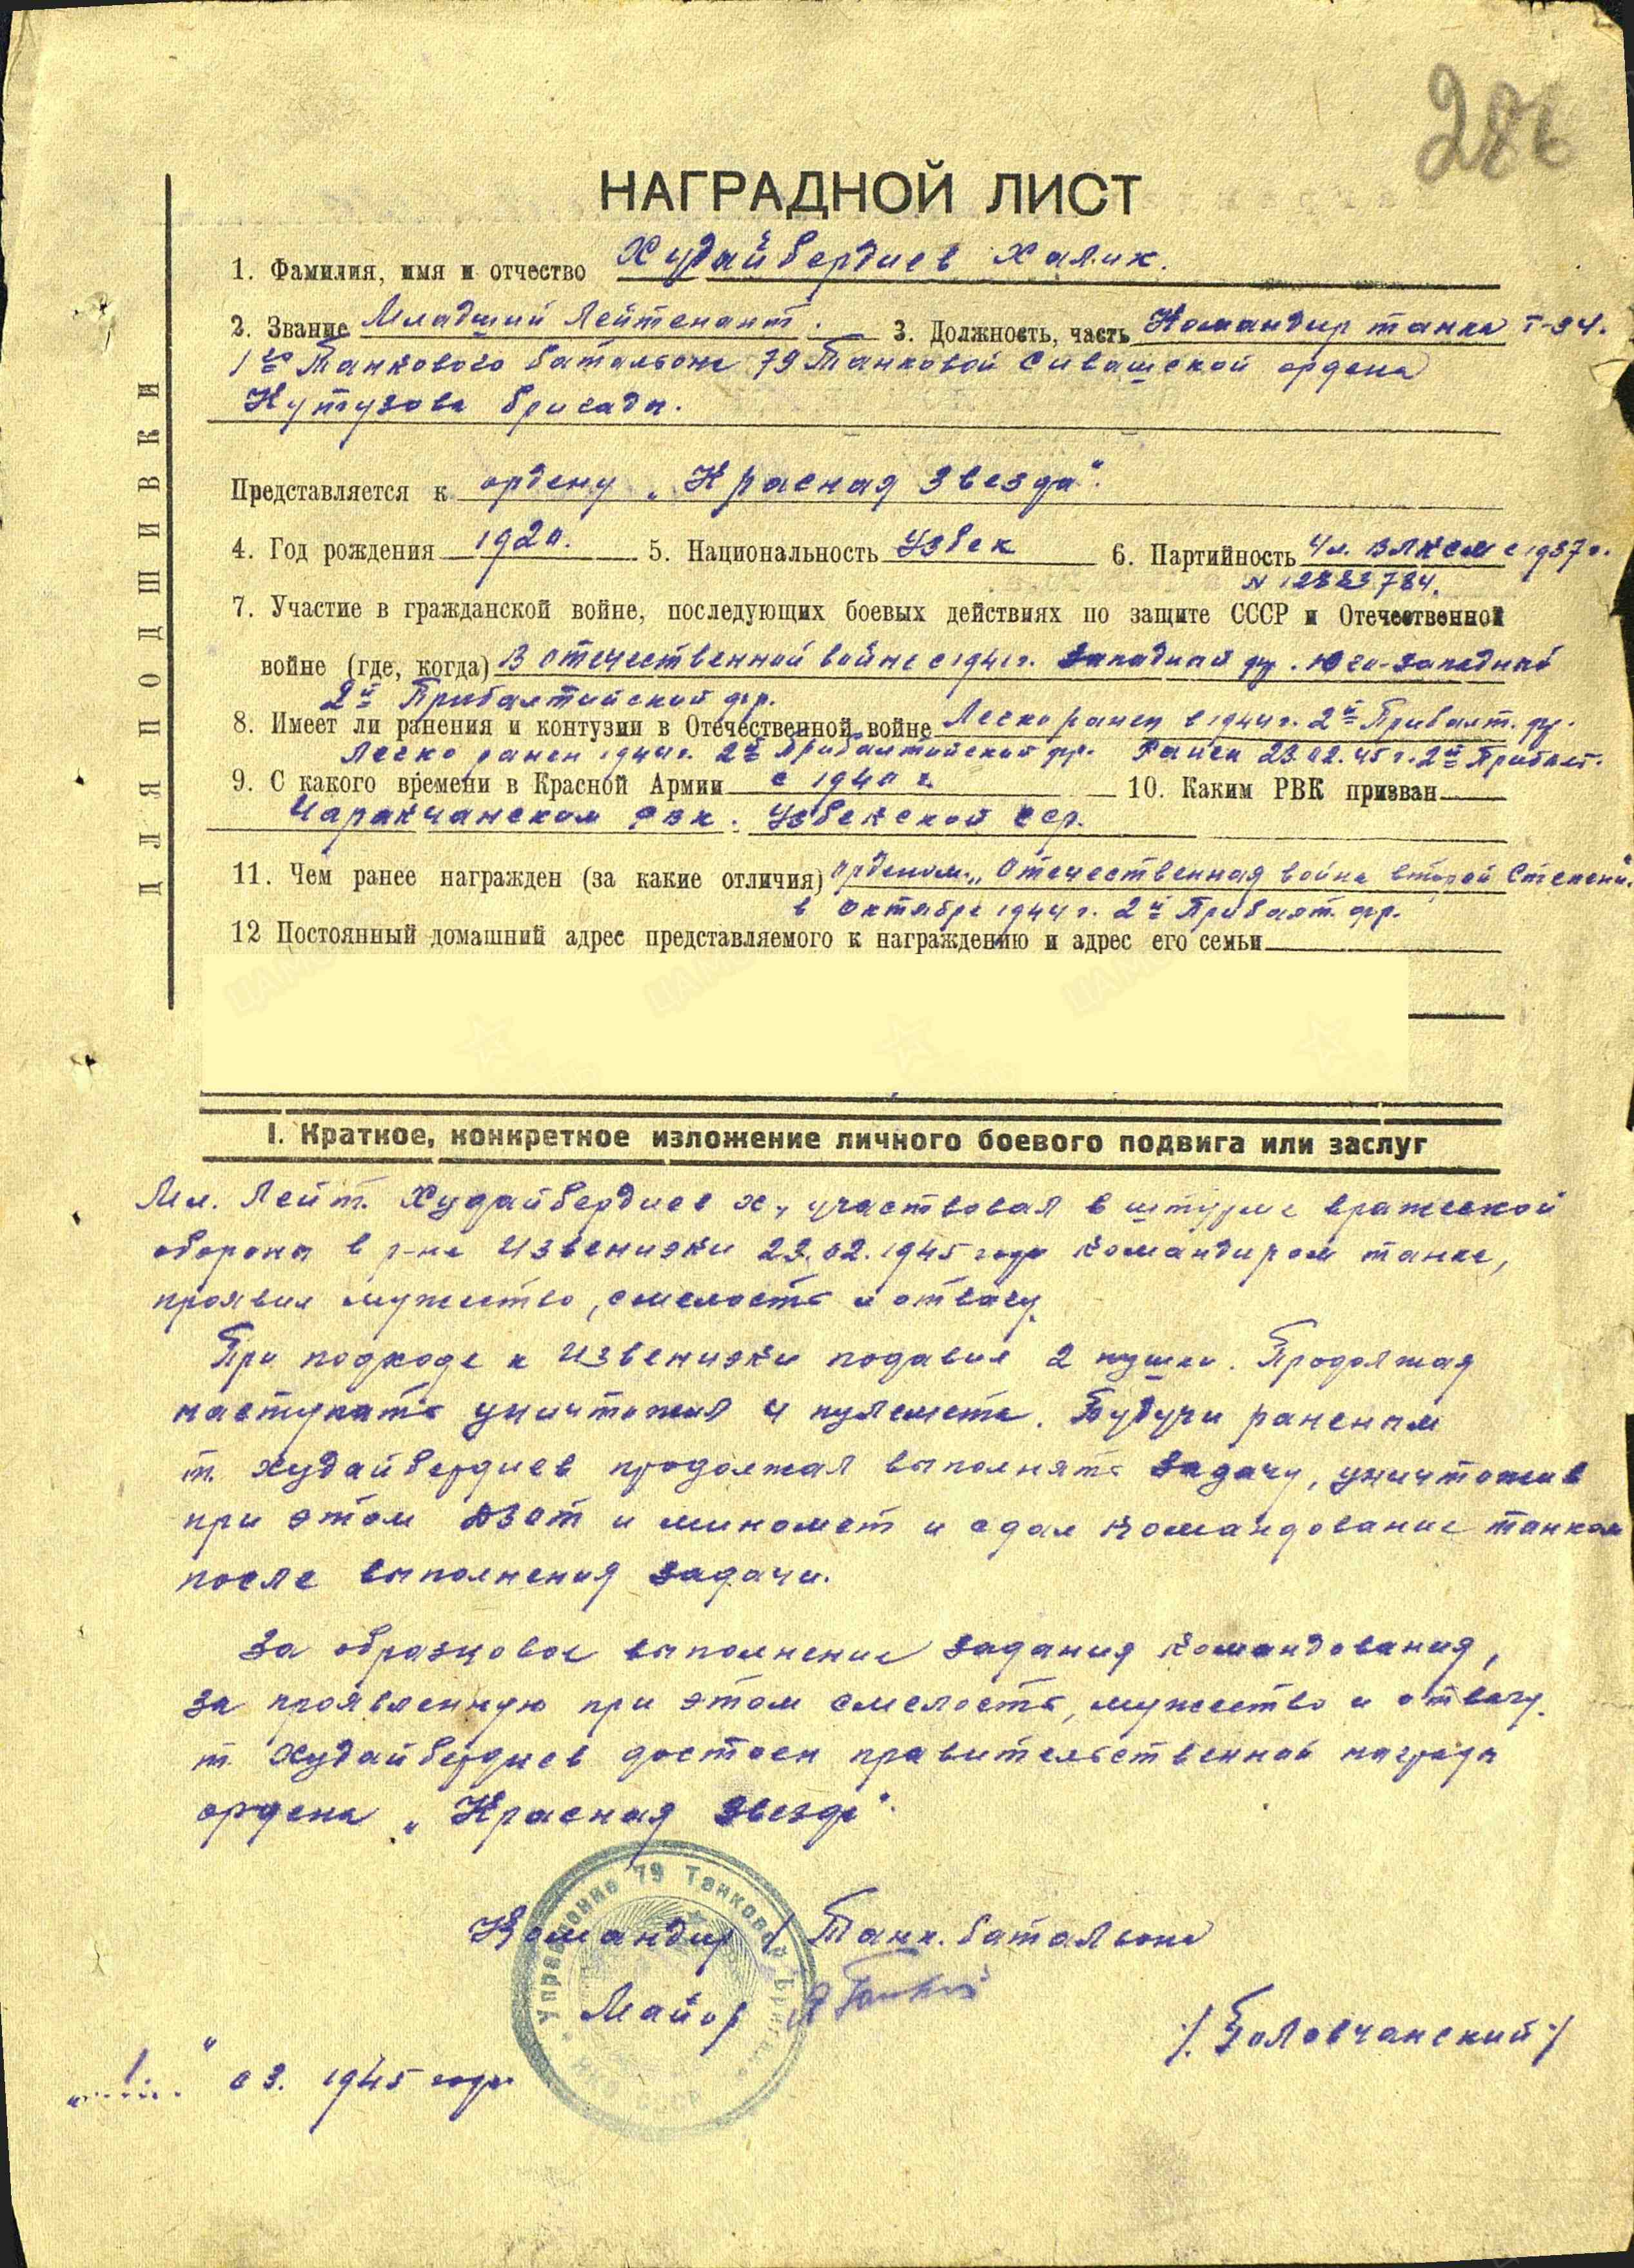 286
НАГРАДНОЙ ЛИСТ
1. Фамилия, имя и отчество Худайбердиев Халик.
2. Звание Младший Лейтенант. 3. Должность, часть Командир танка Т-34.
1го Танкового батальона 79 Танковой Сивашской ордена
Кутузова бригады.
Представляется к ордену „Красная Звезда".
4. Год рождения 1920. 5. Национальность Узбек 6. Партийность Чл. ВЛКСМ с 1937г.
N 12883784.
7. Участие в гражданской войне, последующих боевых действиях по защите СССР и Отечественной
войне (где, когда) В отечественной войне с 1941г. Западный фр. Юго-Западный
2й Прибалтийский фр.
8. Имеет ли ранения и контузии в Отечественной войне Легко ранен в 1944г. 2й Прибалт. фр.
Легко ранен 1944г. 2й Прибалтийский фр. Ранен 23.02.45г. 2й Прибалт.
9. С какого времени в Красной Армии с 1940 г. 10. Каким РВК призван
РВК. Узбекской ССР.
11. Чем ранее награжден (за какие отличия) орденом „Отечественная война второй Степени"
в Октябре 1944г. 2й Прибалт. фр.
12 Постоянный домашний адрес представляемого к награждению и адрес его семьи
ДЛЯ ПОДШИВКИ
I. Краткое, конкретное изложение личного боевого подвига или заслуг
Мл. Лейт. Худайбердиев Х. участвовал в штурме вражеской
обороны в р-не 23.02.1945 года командиром танка,
проявил мужество, смелость и отвагу.
При подходе к подавил 2 пушки. Продолжая
наступать уничтожил 4 пулемета. Будучи раненым
т. Худайбердиев продолжал выполнять задачу, уничтожив
при этом ДЗОТ и миномет и сдал командование танком
после выполнения задачи.
За образцовое выполнение задания командования,
за проявленную при этом смелость, мужество и отвагу.
т. Худайбердиев достоен правительственной награды
ордена „Красная Звезда".
Командир 1 Танк. батальона
Майор /Боловчанский/
„1" 03. 1945 года
Управление 79 Танковой Бригады
НКО СССР